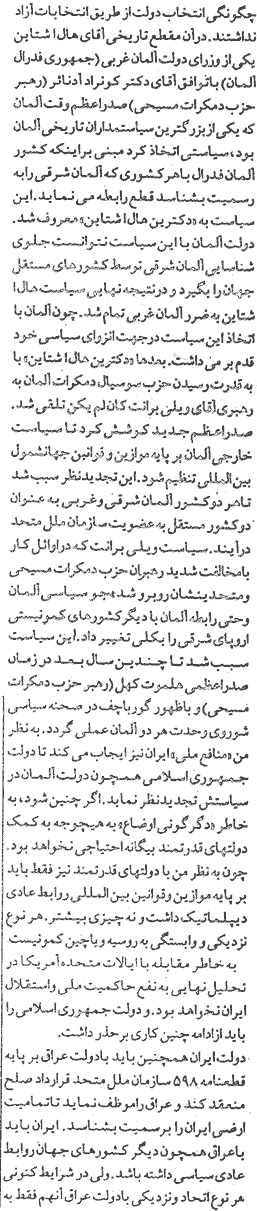 چگونگی انتخاب دولت از طریق انتخابات آزاد
نداشتند. در آن مقطع تاریخی آقای هال اشتاین
یکی از وزرای دولت آلمان غربی (جمهوری فدرال
آلمان) با توافق آقای دکتر کونراد آدنائر (رهبر
حزب دمکرات مسیحی) صدراعظم وقت آلمان
که یکی از بزرگترین سیاستمداران تاریخی آلمان
بود، سیاستی اتخاذ کرد مبنی بر اینکه کشور
آلمان فدرال با هر کشوری که آلمان شرقی را به
رسمیت بشناسد قطع رابطه می نماید. این
سیاست به «دکترین هال اشتاین» معروف شد.
دولت آلمان با این سیاست نتوانست جلوی
شناسایی آلمان شرقی توسط کشورهای مستقل
جهان را بگیرد و در نتیجه نهایی سیاست هال ا
شتاین به ضرر آلمان غربی تمام شد. چون آلمان با
اتخاذ این سیاست در جهت انزرای سیاسی خود
قدم بر می داشت. بعدها «دکترین هال اشتاین» با
به قدرت رسیدن حزب سوسیال دمکرات آلمان به
رهبری آقای ویلی برانت کان لم یکن تلقی شد.
صدراعظم جدید کوشش کرد تا سیاست
خارجی آلمان بر پایه موازین و قوانین جهانشمول
بین المللی تنظیم شود. این تجدید نظر سبب شد
تا هر دو کشور آلمان شرقی و غربی به عنوان
دو کشور مستقل به عضویت سازمان ملل متحد
در آیند. سیاست ویلی برانت که در اوائل کار
با مخالفت شدید رهبران حزب دمکرات مسیحی
و متحدینشان روبرو شد، جو سیاسی آلمان
و حتی رابطه آلمان با دیگر کشورهای کمونیستی
اروپای شرقی را بکلی تغییر داد. این سیاست
سبب شد تا چندین سال بعد در زمان
صدراعظمی هلموت کهل (رهبر حزب دمکرات
مسیحی) و با ظهور گورباچف در صحنه سیاسی
شوروی وحدت هر دو آلمان عملی گردد. به نظر
من «منافع ملی» ایران نیز ایجاب می کند تا دولت
جمهوری اسلامی همچون دولت آلمان در
سیاستش تجدید نظر نماید. اگر چنین شود، به
خاطر «دگرگونی اوضاع» به هیچوجه به کمک
دولتهای قدرتمند بیگانه احتیاجی نخواهد بود.
چون به نظر من با دولتهای قدرتمند نیز فقط باید
بر پایه موازین و قوانین بین المللی روابط عادی
دیپلماتیک داشت و نه چیزی بیشتر. هر نوع
نزدیکی و وابستگی به روسیه و یا چین کمونیست
به خاطر مقابله با ایالات متحده آمریکا در
تحلیل نهایی به نفع حاکمیت ملی و استقلال
ایران نخواهد بود. و دولت جمهوری اسلامی را
باید از ادامه چنین کاری بر حذر داشت.
دولت ایران همچنین باید با دولت عراق بر پایه
قطعنامه ۵۹۸ سازمان ملل متحد قرارداد صلح
منعقد کند و عراق را موظف نماید تا تمامیت
ارضی ایران را برسمیت بشناسد. ایران باید
با عراق همچون دیگر کشورهای جهان روابط
عادی سیاسی داشته باشد. ولی در شرایط کنونی
هر نوع اتحاد و نزدیکی با دولت عراق آنهم فقط به